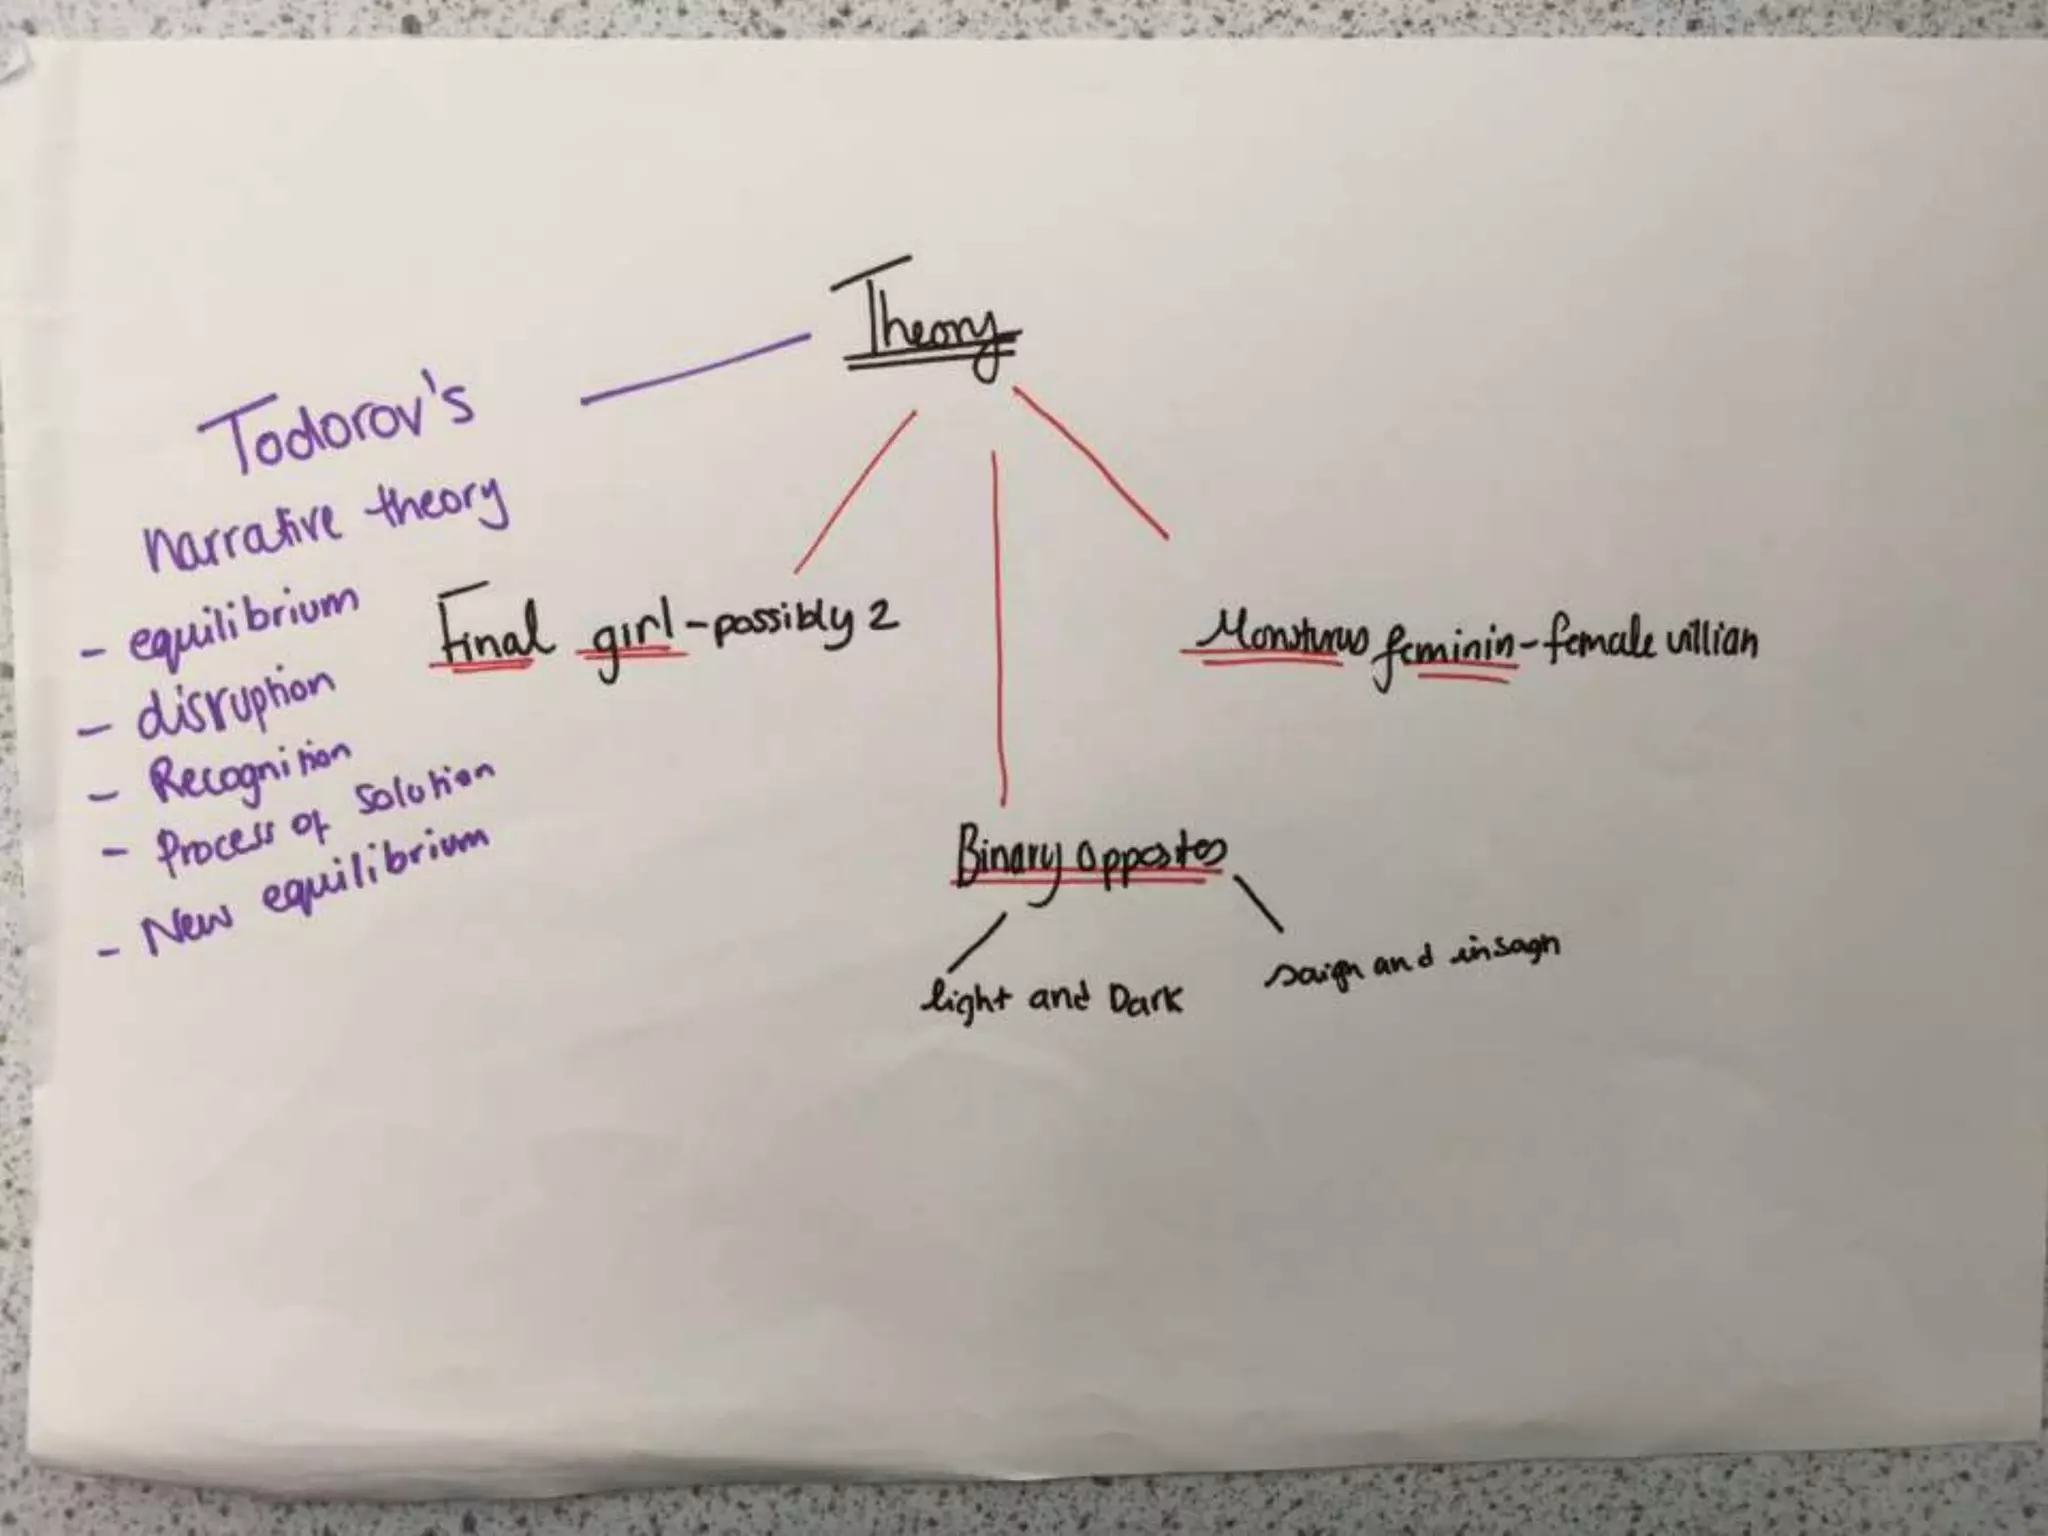 Theory
Todorov's
narrative theory
- equilibrium
- disruption
- Recognition
- Process of solution
- New equilibrium
Final girl - possibly 2
Monstrus feminin - female villian
Binary oppostes
light and Dark
saign and insagn